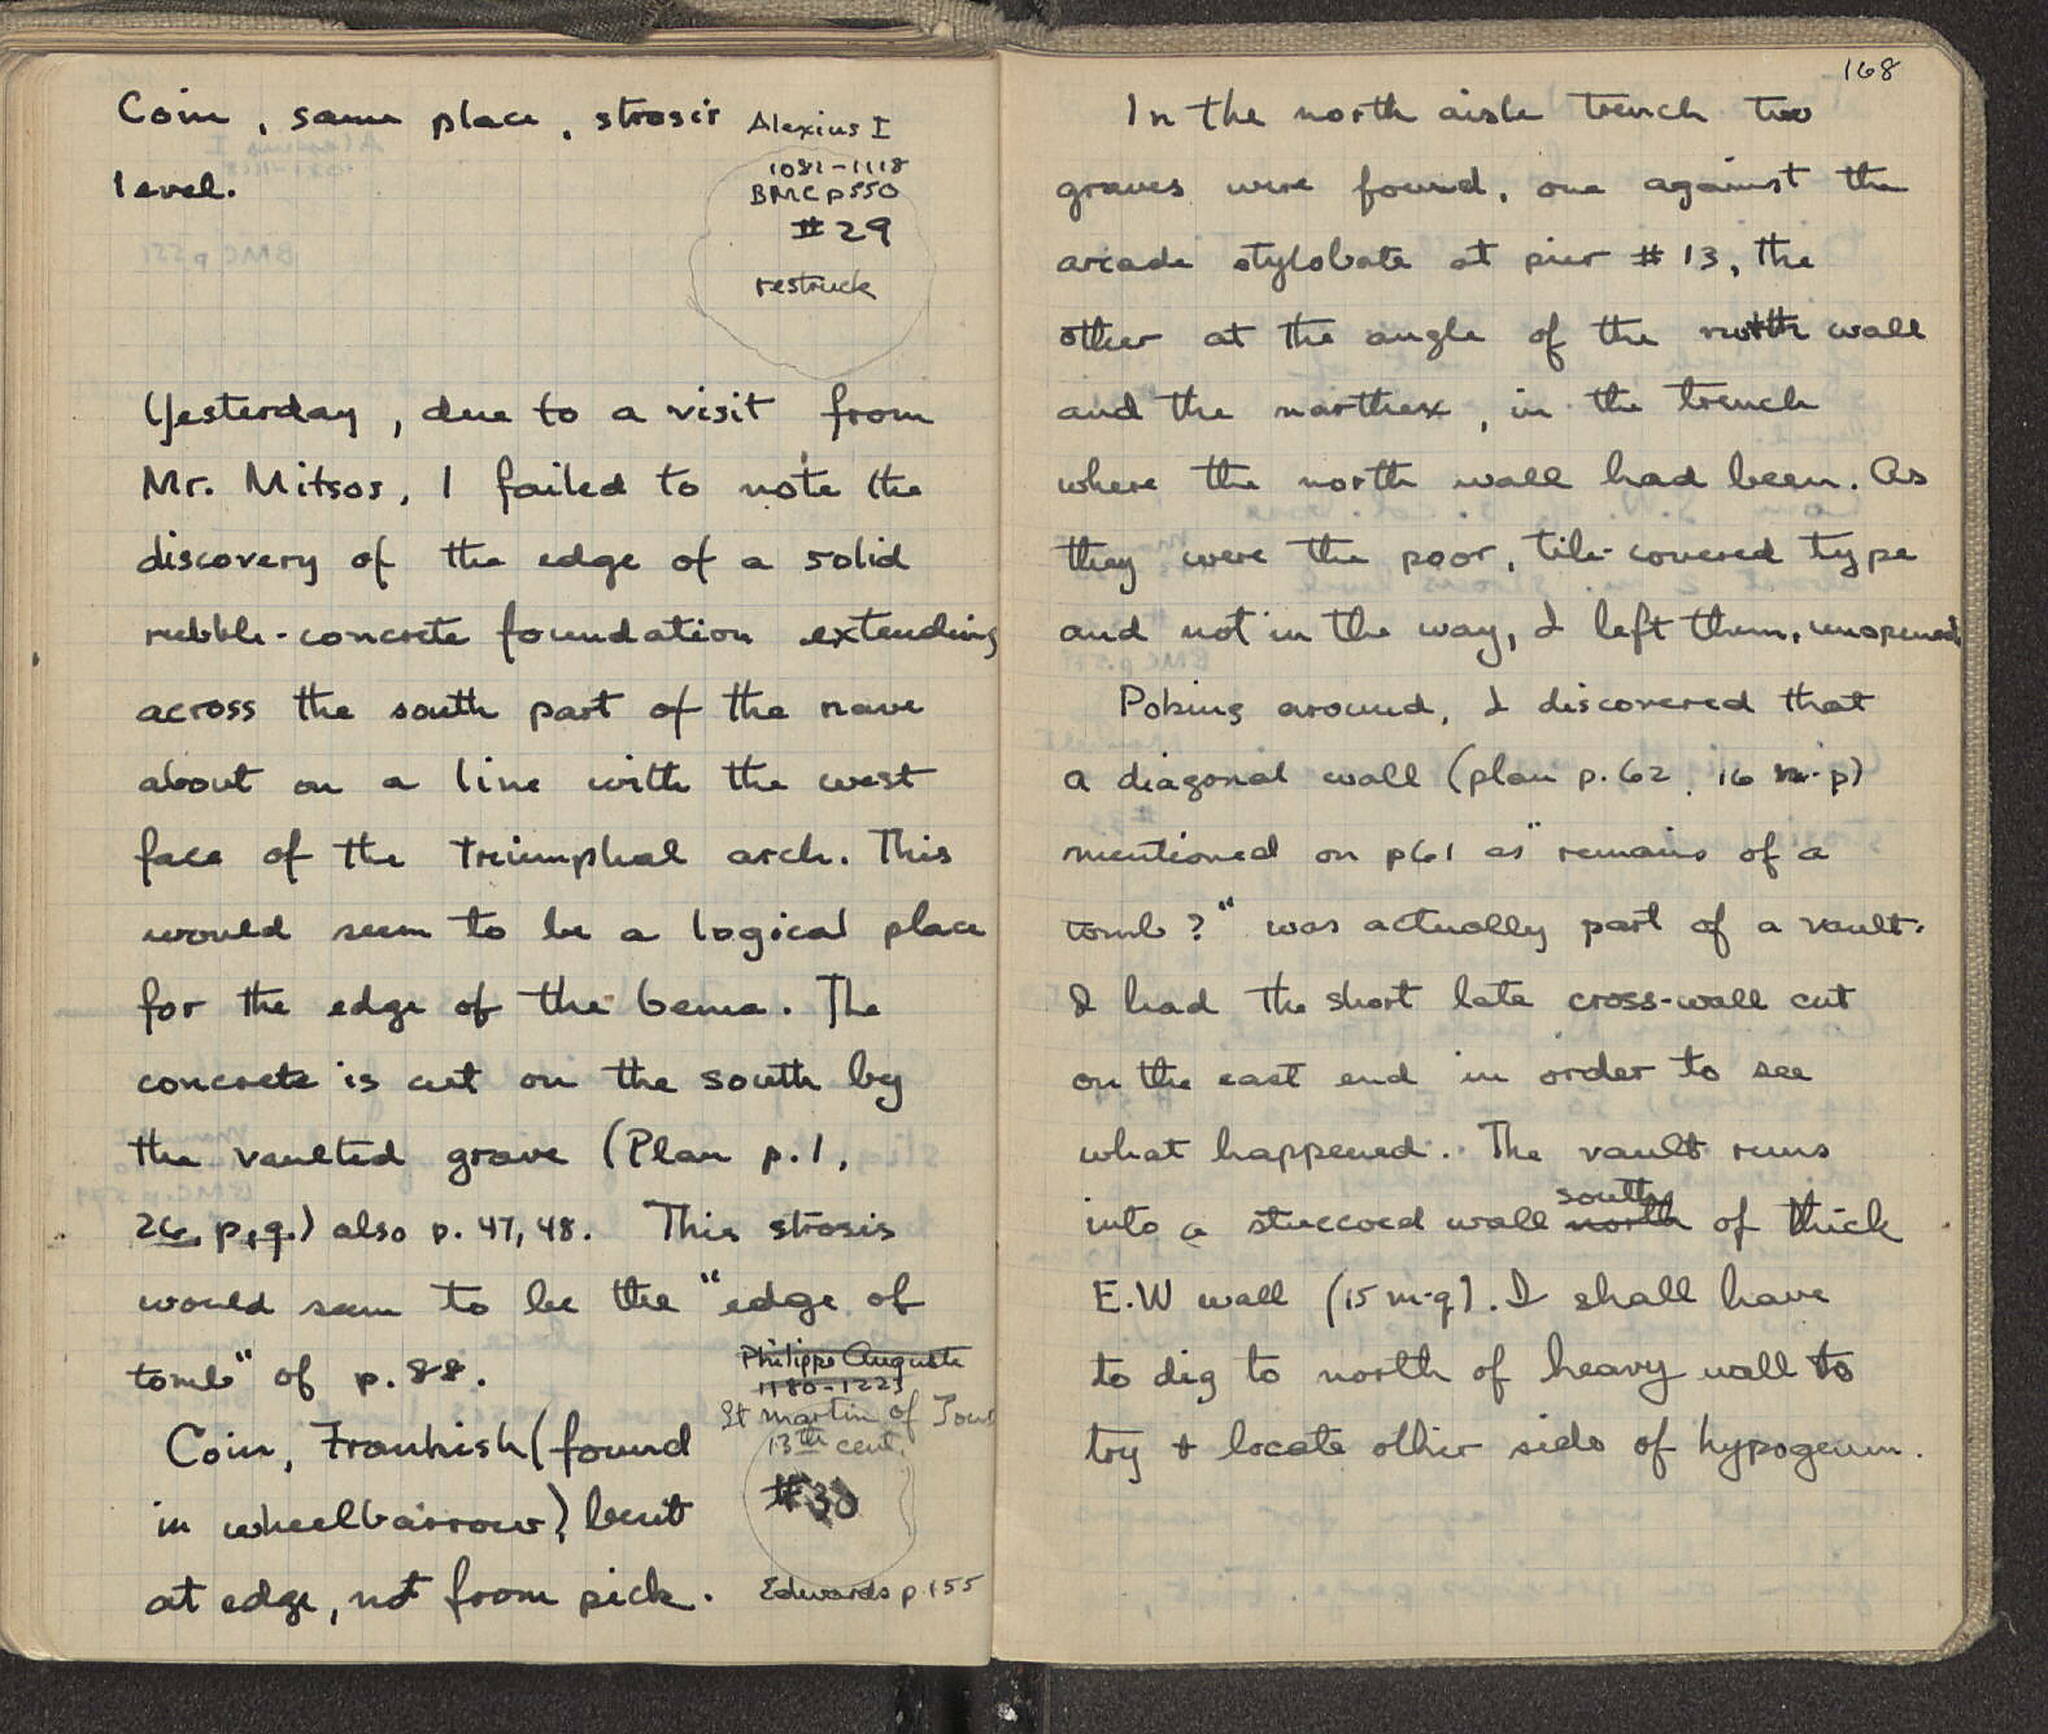 Coin, same place, strosis
level.
Alexius I
1081-1118
BMC p550
#29
restruck
Yesterday, due to a visit from
Mr. Mitsos, I failed to note the
discovery of the edge of a solid
rubble-concrete foundation extending
across the south part of the nave
about on a line with the west
face of the triumphal arch. This
would seem to be a logical place
for the edge of the bema. The
concrete is cut on the south by
the vaulted grave (Plan p. 1,
26, p,q.) also p. 47, 48. This strosis
would seem to be the "edge of
tomb" of p. 88.
Philippe Auguste
1180-1223
St martin of Tours
13th cent.
#30
Edwards p. 155
Coin, Frankish (found
in wheelbarrow) bent
at edge, not from pick.
168
In the north aisle trench two
graves were found, one against the
arcade stylobate at pier #13, the
other at the angle of the north wall
and the narthex, in the trench
where the north wall had been. As
they were the poor, tile-covered type
and not in the way, I left them, unopened
Poking around, I discovered that
a diagonal wall (plan p. 62, 16 m-p)
mentioned on p61 as "remains of a
tomb?" was actually part of a vault.
I had the short late cross-wall cut
on the east end in order to see
what happened. The vault runs
south
into a stuccoed wall north of thick
E.W wall (15 m-q). I shall have
to dig to north of heavy wall to
try + locate other side of hypogeum.